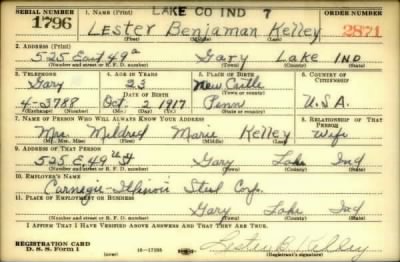 LAKE CO IND 7
SERIAL NUMBER 1. NAME (Print) ORDER NUMBER
1796 LESTER Benjaman Kelley 2871
(First) (Middle) (Last)
2. ADDRESS (Print)
525 East 49th Gary Lake IND
(Number and street or R. F. D. number) (Town) (County) (State)
3. TELEPHONE 4. AGE IN YEARS 5. PLACE OF BIRTH 6. COUNTRY OF CITIZENSHIP
Gary 23 New Castle
DATE OF BIRTH (Town or county)
4-3788 Oct. 2 1917 Penn U.S.A.
(Exchange) (Number) (Mo.) (Day) (Yr.) (State or country)
7. NAME OF PERSON WHO WILL ALWAYS KNOW YOUR ADDRESS 8. RELATIONSHIP OF THAT PERSON
Mrs. Mildred Marie Kelley Wife
(Mr., Mrs., Miss) (First) (Middle) (Last)
9. ADDRESS OF THAT PERSON
525 E. 49th Gary Lake Ind
(Number and street or R. F. D. number) (Town) (County) (State)
10. EMPLOYER'S NAME
Carnegie-Illinois Steel Corp.
11. PLACE OF EMPLOYMENT OR BUSINESS
Gary Lake Ind
(Number and street or R. F. D. number) (Town) (County) (State)
I AFFIRM THAT I HAVE VERIFIED ABOVE ANSWERS AND THAT THEY ARE TRUE.
REGISTRATION CARD
D. S. S. Form 1 (over) 16-17105 (Registrant's signature)